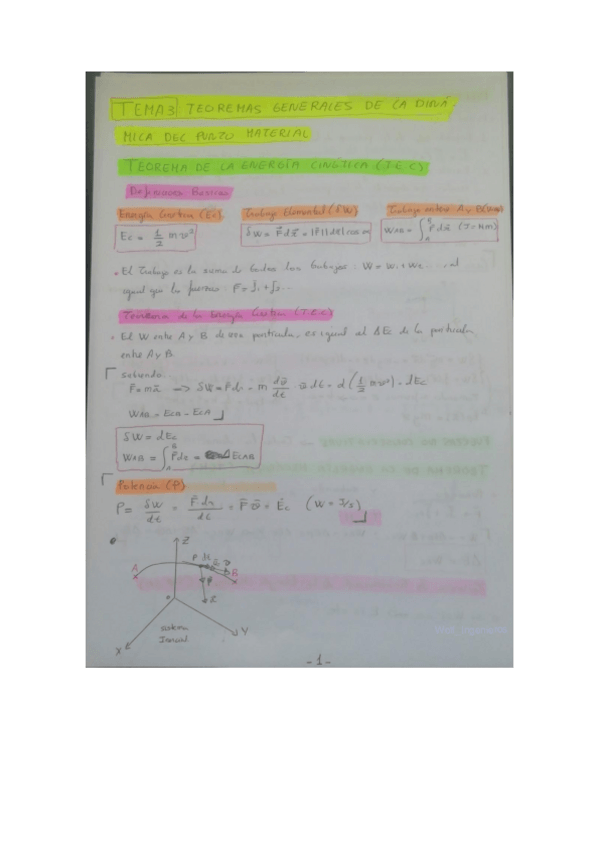 TEMA 3 TEOREMAS GENERALES DE LA DINÁ-
MICA DEL PUNTO MATERIAL
TEOREMA DE LA ENERGÍA CINÉTICA (T.E.C)
Definiciones Básicas
Energía Cinética (Ec) Trabajo Elemental (δW) Trabajo entre A y B (WAB)
Ec = 1/2 m v² δW = F dr = |F| |dr| cos α WAB = ∫_A^B F dr (J = N·m)
• El Trabajo es la suma de todos los trabajos: W = W1 + W2 ..., al
igual que la fuerza: F = f1 + f2 ...
Teorema de la Energía Cinética (T.E.C)
• El W entre A y B de una partícula, es igual al ΔE de la partícula
entre A y B.
sabiendo:
F = ma → δW = F dr = m dv/dt · v dt = d(1/2 m v²) = dEc
WAB = EcB - EcA
δW = dEc
WAB = ∫_A^B F dr = EcAB
Potencia (P)
P = δW/dt = F dr/dt = F v = Ėc (W = J/s)
Z
A
B
X
Y
sistema
Inercial
-1-